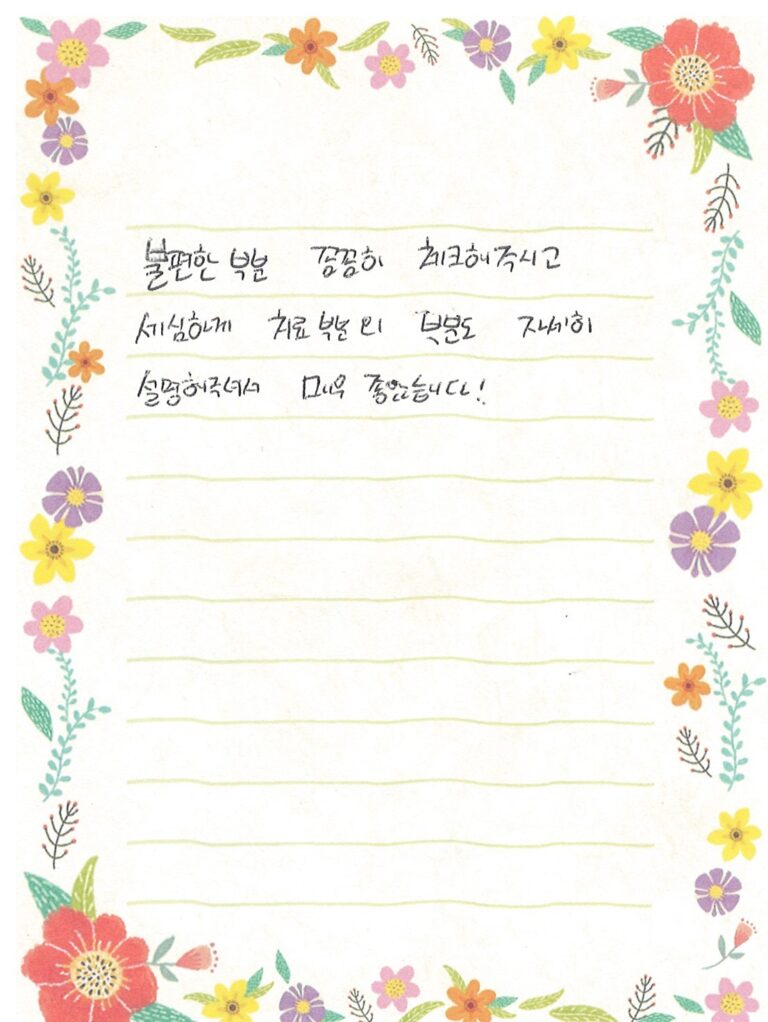 불편한 부분 꼼꼼히 체크해주시고
세심하게 치료 부분 외 부분도 자세히
설명해주셔서 매우 좋았습니다!